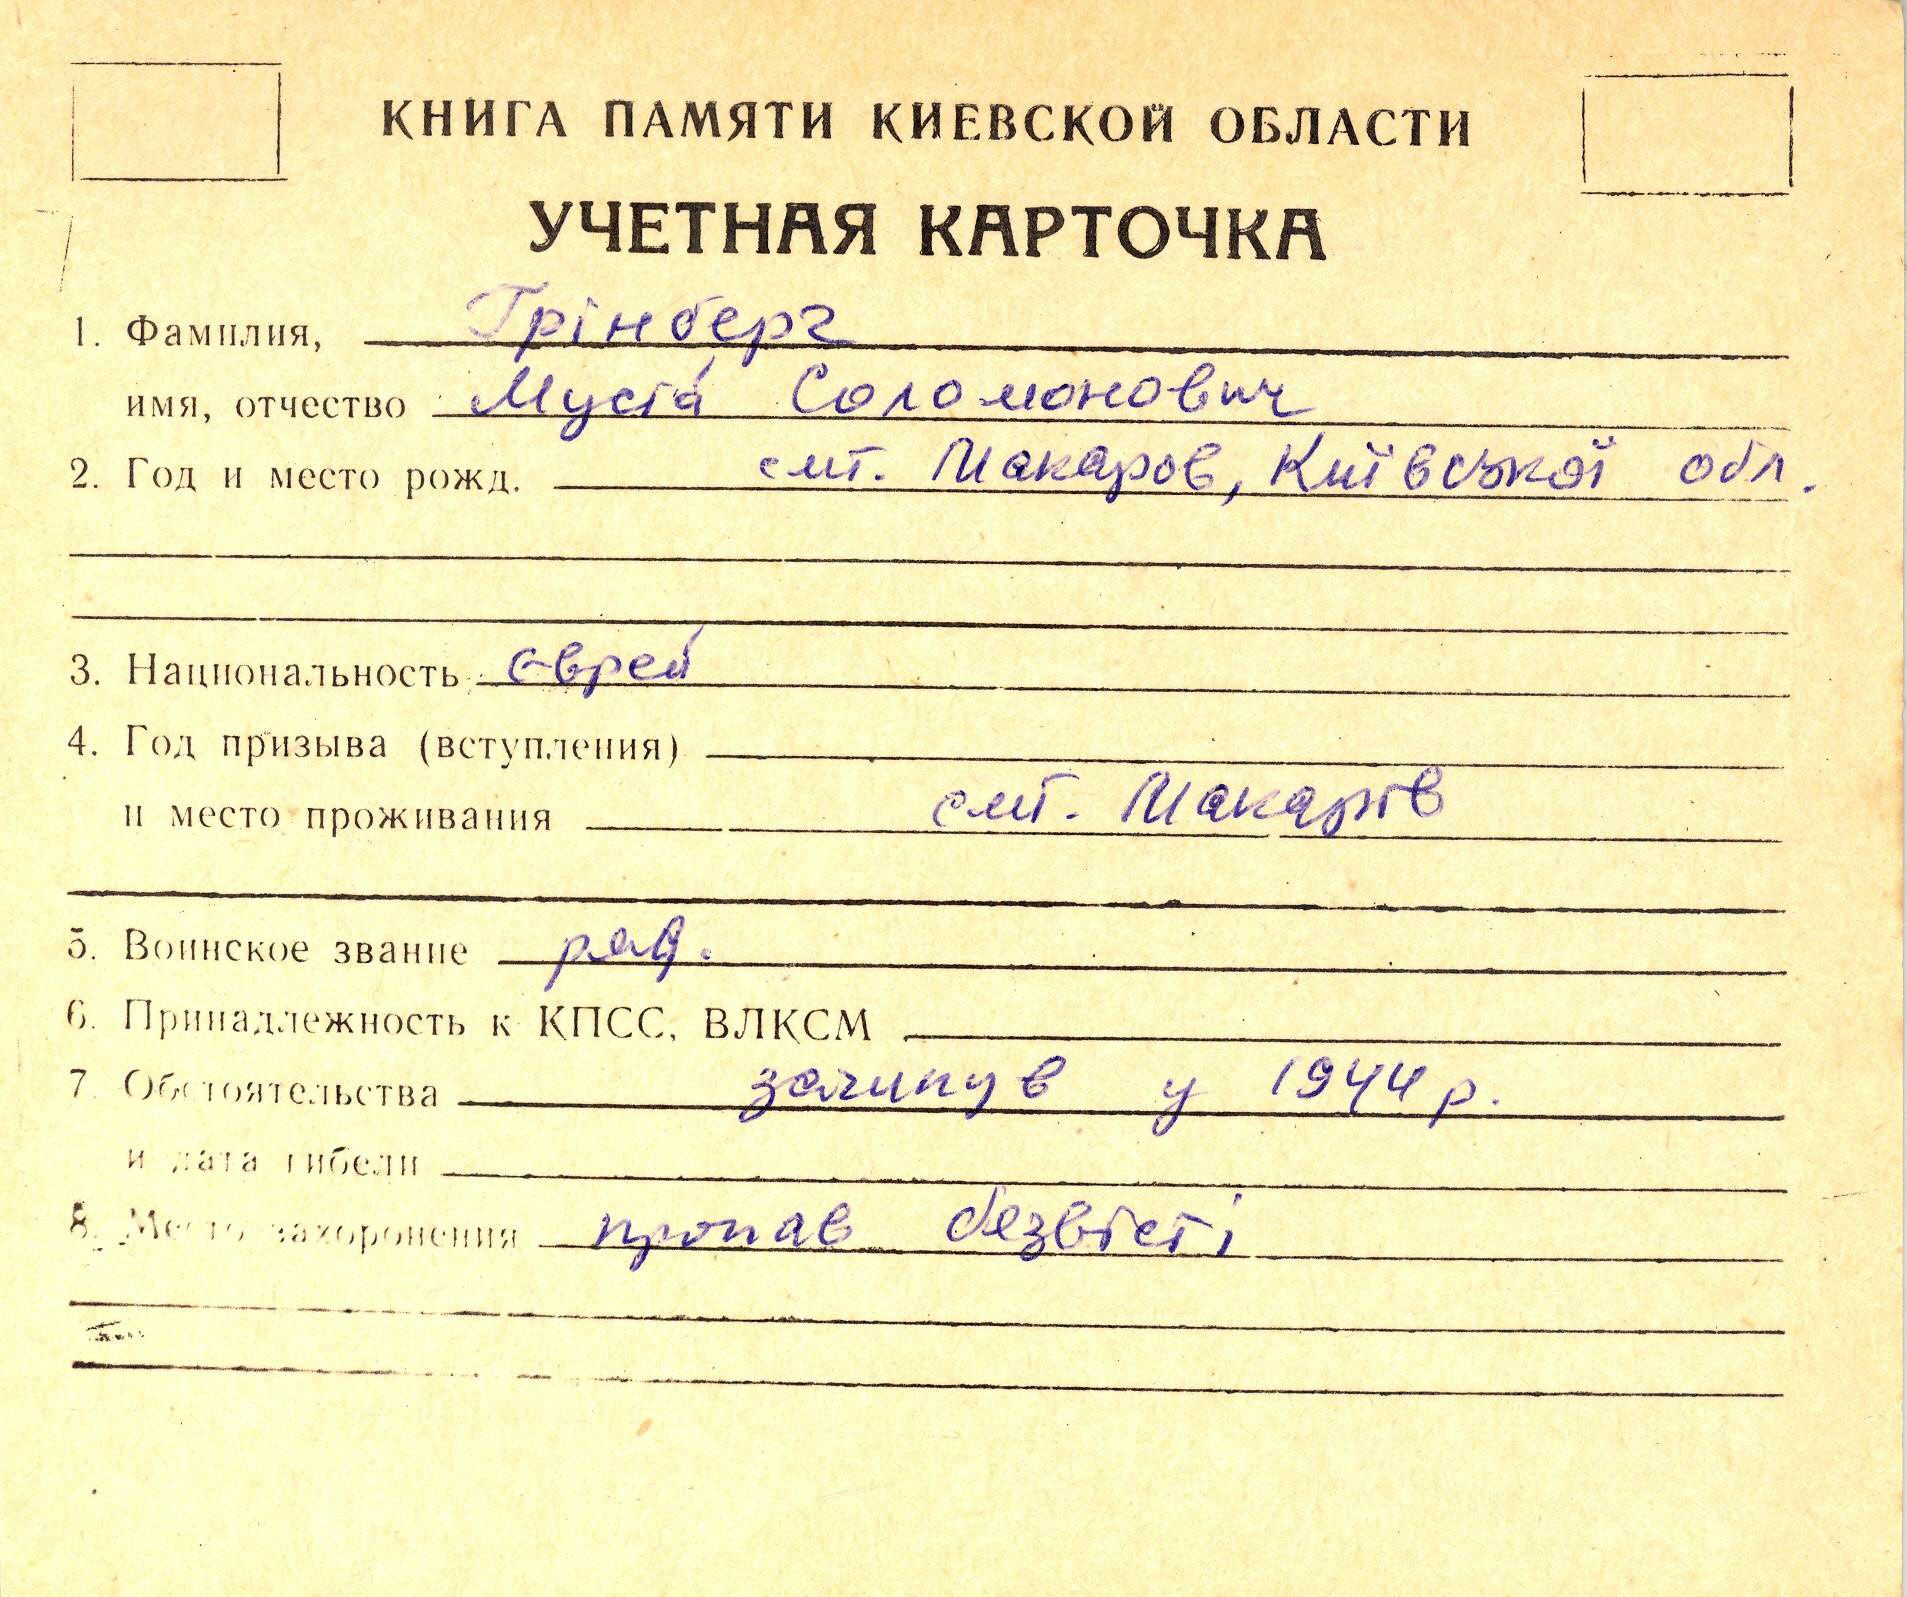 КНИГА ПАМЯТИ КИЕВСКОЙ ОБЛАСТИ
УЧЕТНАЯ КАРТОЧКА
1. Фамилия, Грінберг
имя, отчество Мусій Соломонович
2. Год и место рожд. смт. Макаров, Київської обл.
3. Национальность єврей
4. Год призыва (вступления)
и место проживания смт. Макарів
5. Воинское звание ряд.
6. Принадлежность к КПСС, ВЛКСМ
7. Обстоятельства загинув у 1944 р.
и дата гибели
8. Место захоронения пропав безвісті